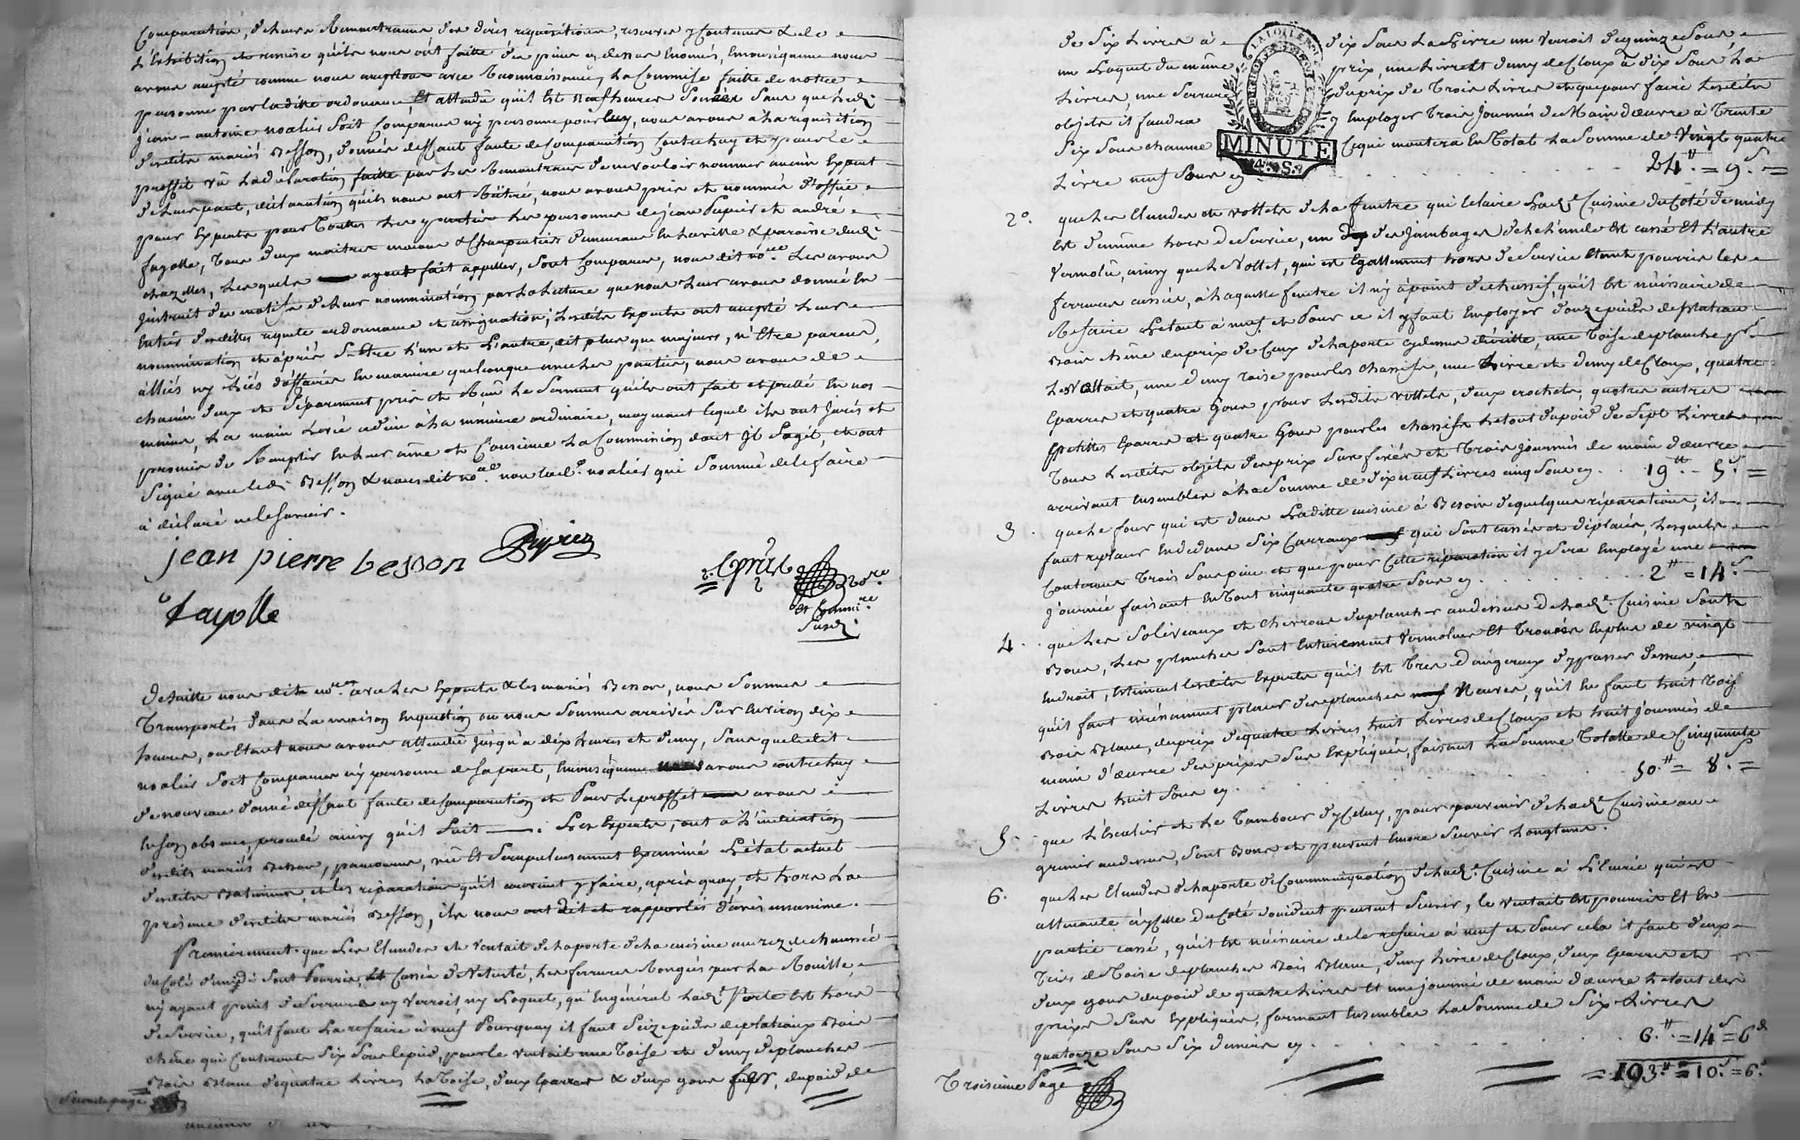 Comparution, d'heure Remontrances des dires requisitions, reserves y contenus & de
L'Exhibition et remise qu'ils nous ont faitte des pieces cy dessus Enoncés, En consequence nous
avons accepté comme nous acceptons avec Reconnoissance La Commise faitte de notre
personne par laditte ordonnance, Et attendu qu'il est neuf heures sonnées sans que led.
jean-antoine noalies soit Comparu ny personne pour luy, nous avons a la requisition
desdits mariés Besson, donnés deffaut faute de Comparution Contre luy et pour le
proffit vû la déclaration faitte par les Remontrants de ne vouloir nommer aucun Expert
de leur part, déclaration qu'ils nous ont Réitéré, nous avons pris et nommés d'office
pour Experts pour Toutes Les parties Les personnes de jean Pupier et andré
fayolle, Tous deux maitres masons & Charpentiers demeurans En la ville & paroisse dud.
chazelles, Lesquels ayant fait appeller, sont Comparus, nous dit no.re Les avons
jnstruit des motifs de leur nommination par la Lecture que nous Leur avons donnée En
Entier desdittes requete ordonnance et assignation; Lesdits Experts ont accepté Leur
nommination et après s'Etre L'un et L'autre, dit plus que majeurs, n'Etre parens,
alliés ny liés d'affaires En maniere quelconque avec les parties, nous avons de
chacun d'eux et séparement pris et Reçu Le serment qu'ils ont fait et presté En nos
mains, La main Levée a dieu à la maniere ordinaire, moyennant Lequel ils ont jurés et
promis de Remplir En leur ame et Conscience La Commission dont Il s'agit, et ont
signé avec led. Besson & nous dit no.re non led. noalies qui sommé de le faire
a déclaré ne le savoir.
jean pierre besson Pupier
fayolle
no.re
et Commi.re
susd.
De suitte nous dit no.re avec les Experts & les mariés Besson, nous sommes
Transportés dans La maison En question ou nous sommes arrivés sur Environ dix
heures, ou Etant nous avons attendu jusqu'a dix heures et demy, sans que ledit
noalies soit Comparu ny personne de sa part, En consequence avons contre luy
de nouveau donné deffaut faute de Comparution et Pour Le proffit avons
En son absence, procédé ainsy qu'il suit. Les Experts, ont a L'indication
desdits mariés Besson, parcourus, vû Et scrupuleusement Examiné L'état actuel
desdits Batimens, et les réparations qu'il convient y faire, après quoy, et hors La
présence desdits mariés Besson, ils nous ont dit et rapportés d'avis unanime.
Premierement que Les Elundes et ventail de la porte de la cuisine au rez de chaussée
du Coté d'midi sont Pourris, Et Cassés de Vetusté, Les ferrures Rongés par La Rouille,
n'y ayant point de serrure ny verroit, ny Loquet, qu'En général Lad. Porte Est hors
de service, qu'il faut La refaire à neuf Pourquoy il faut seize pieds de plateaux Bois
chêne qui Coutrons six sous le pied, pour le ventail une Toise et demy de planches
Bois Blanc de quatre Livres La Toise, deux Eparres & deux gons fer, du poid de
seconde page
de six Livres à dix sous La Livre un verroit de quinze sous
un Loquet du même prix, une Livre Et demy de Cloux a dix sous La
Livre, une serrure du prix de Trois Livres et que pour faire Lesdits
objets il faudra y Employer Trois journées de Main d'œuvre à Trente
six sous chacune Ce qui montera En Total La somme de Vingt quatre
Livre neuf sous cy . . . . 24.# = 9.s =
LA LOI LE ROI
MINUTE
4. S.
2.o que Les Elundes et vollets de la fenetre qui Eclaire Lad. Cuisine du Coté de midy
Est de même hors de service, un des jambages de lelunde Est cassé Et L'autre
Vermolu, ainsy que Le Vollet, qui est Egallement hors de service Etant pourris Les
ferrures cassées, à laquelle fenetre il n'y a point de chassis, qu'il Est nécessaire de
Refaire Le tout à neuf et Pour ce il y faut Employer douze pieds de plateau
Bois chêne du prix de Ceux de la porte cy dessus décritte, une Toise de planche p.r
Le Vollait, une demy Toise pour les chassis, une Livre et demy de Cloux, quatre
Eparres et quatre Gons pour Lesdits vollets, deux crochets, quatre autres
petittes Eparres et quatre Gons pour les chassis Le tout du poid de sept Livres
Tous Lesdits objets des prix sus fixés et Trois journées de main d'œuvre
arrivant Ensembles à La somme de dix neuf Livres cinq sous cy . . 19.# - 5.s =
3 . que Le four qui est dans Laditte cuisine à Besoin de quelques réparations, il
faut replacer En dedans six Carreaux qui sont cassés et déplacés, Lesquels
Coutrons Trois sous piece et que pour Cette réparation il y sera Employé une
journée faisant En Tout cinquante quatre sous cy . . . 2.# = 14.s
4. . que Les soliveaux et chevrons du plancher au dessus de lad. Cuisine sont
Bons, Les planches sont Entierement vermolues Et Trouées En plus de vingt
Endroit, Estiment Lesdits Experts qu'il Est Très dangereux d'y passer dessus,
qu'il faut nécésairement placer des planches Neuves, qu'il En faut huit Toises
Bois Blanc, du prix de quatre Livres, huit Livres de Cloux et huit journées de
main d'œuvre des prix sus Expliqués, faisant La somme Totalle de Cinquante
Livres huit sous cy . . . 50.# = 8.s =
5. que L'Escalier et Le Tambour d'yCeluy, pour parvenir de lad. Cuisine au
grenier au dessus, sont Bons et peuvent Encore servir Longtems.
6. que Les Elundes de la porte de Communiquation de lad. Cuisine à L'Ecurie qui est
attenante à yCelle du Coté d'oxident peuvent servir, le ventail Est pourris Et En
partie cassé, qu'il Est nécésaire de le refaire à neuf et Pour cela il faut deux
Tiers de Toise de planches Bois Blanc, demy Livre de Cloux, deux Eparres et
deux gons du poid de quatre Livres Et une journée de main d'œuvre Le tout des
prix sus Expliqués, formant Ensembles La somme de six Livres
quatorze sous six deniers cy . . . . 6.# = 14.s = 6.d
= 193.# = 10.s = 6.d
Troisieme Page